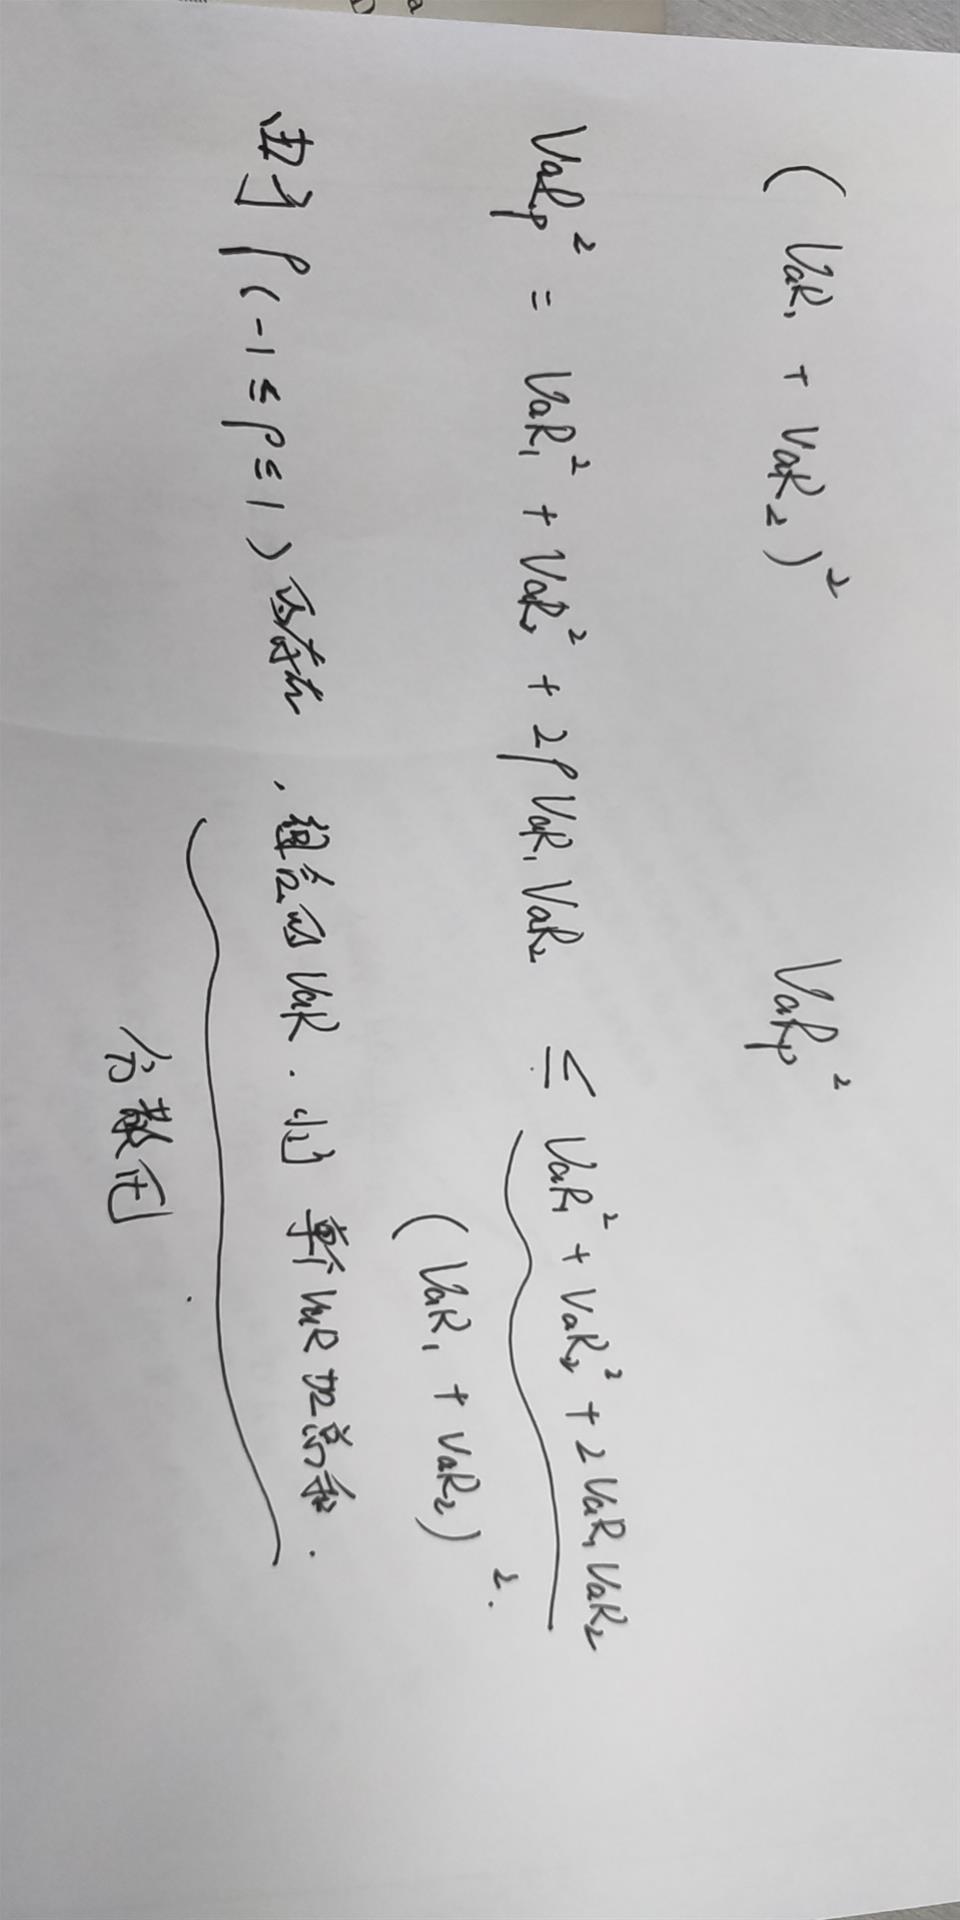 (VaR₁ + VaR₂)² VaRp²
VaRp² = VaR₁² + VaR₂² + 2ρVaR₁VaR₂ ≤ VaR₁² + VaR₂² + 2VaR₁VaR₂
(VaR₁ + VaR₂)².
由于ρ(-1≤ρ≤1)的存在,组合的VaR.小于 单个VaR加总和.
分散化